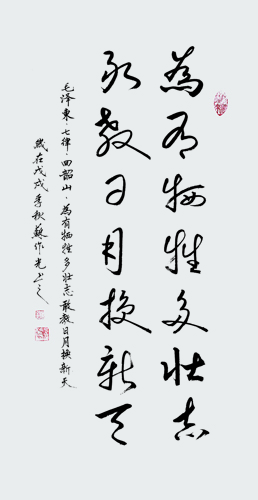 為有牺牲多壮志
敢教日月换新天
毛泽東·七律·回韶山·為有牺牲多壮志敢教日月换新天
歲在戊戌季秋蘇作光書